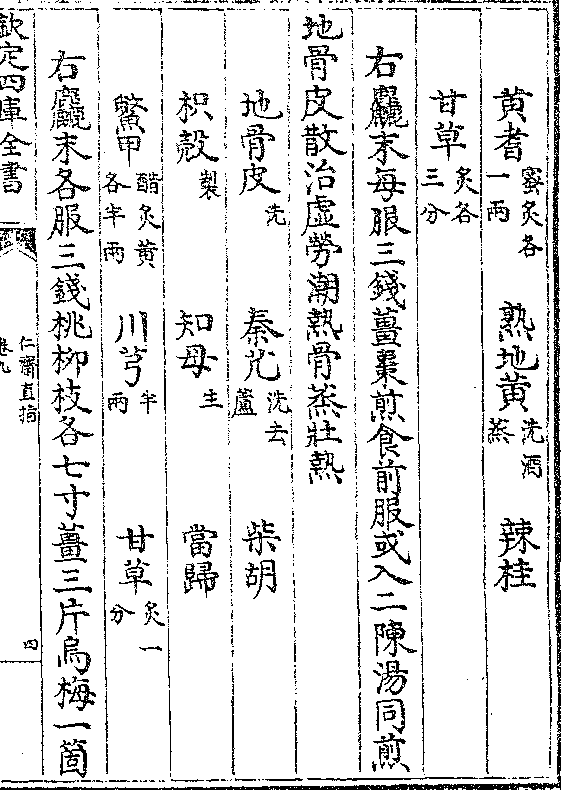 黄耆蜜炙各一兩　熟地黄洗酒蒸　辣桂
甘草炙各三分
右麤末每服三錢薑棗煎食前服或入二陳湯同煎
地骨皮散治虛勞潮熱骨蒸壯熱
地骨皮洗　秦艽洗去蘆　柴胡
枳殼製　知母生　當歸
鱉甲醋炙黄各半兩　川芎半兩　甘草炙一分
右麤末各服三錢桃柳枝各七寸薑三片烏梅一箇
欽定四庫全書　仁齋直指卷九　四